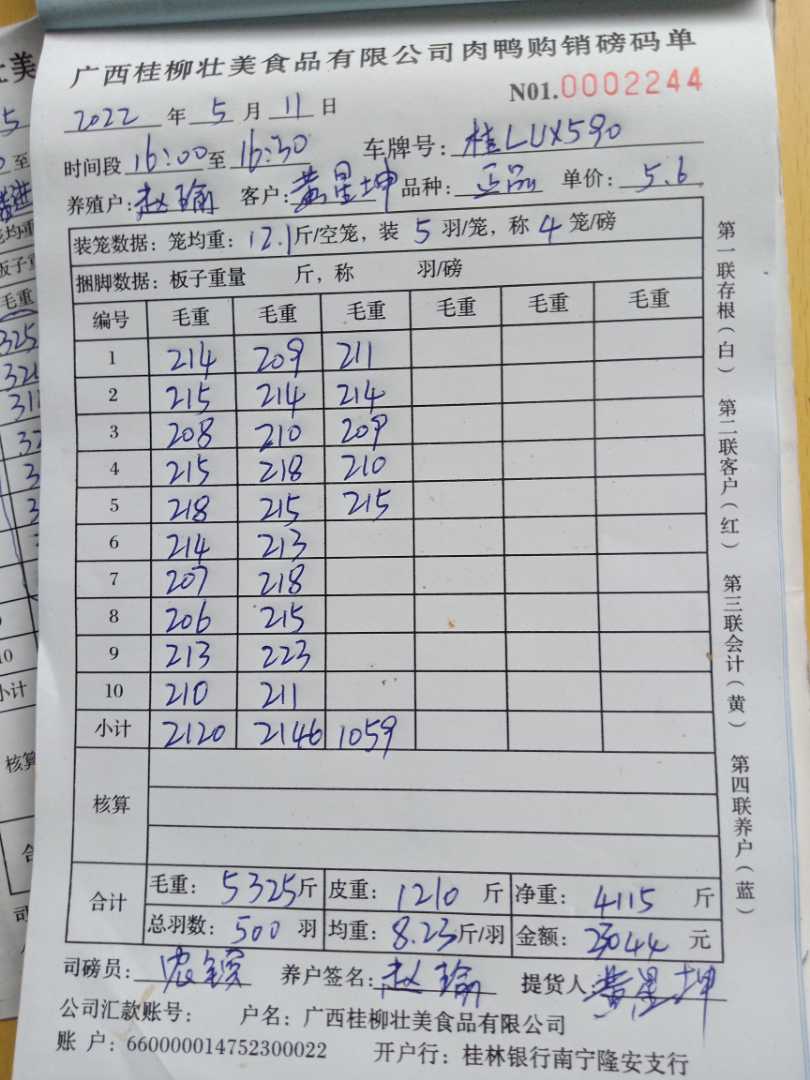 广西桂柳壮美食品有限公司肉鸭购销磅码单
N01.0002244
2022 年 5 月 11 日
时间段 16:00 至 16:30 车牌号: 桂LUX590
养殖户: 赵瑜 客户: 黄星坤 品种: 正品 单价: 5.6
装笼数据: 笼均重: 12.1 斤/空笼, 装 5 羽/笼, 称 4 笼/磅
捆脚数据: 板子重量 斤, 称 羽/磅
编号 毛重 毛重 毛重 毛重 毛重 毛重
1 214 209 211
2 215 214 214
3 208 210 209
4 215 218 210
5 218 215 215
6 214 213
7 207 218
8 206 215
9 213 223
10 210 211
小计 2120 2146 1059
核算
合计 毛重: 5325 斤 皮重: 1210 斤 净重: 4115 斤
总羽数: 500 羽 均重: 8.23 斤/羽 金额: 23044 元
司磅员: 养户签名: 赵瑜 提货人 黄星坤
公司汇款账号: 户名: 广西桂柳壮美食品有限公司
账 户: 660000014752300022 开户行: 桂林银行南宁隆安支行
第一联存根(白) 第二联客户(红) 第三联会计(黄) 第四联养户(蓝)